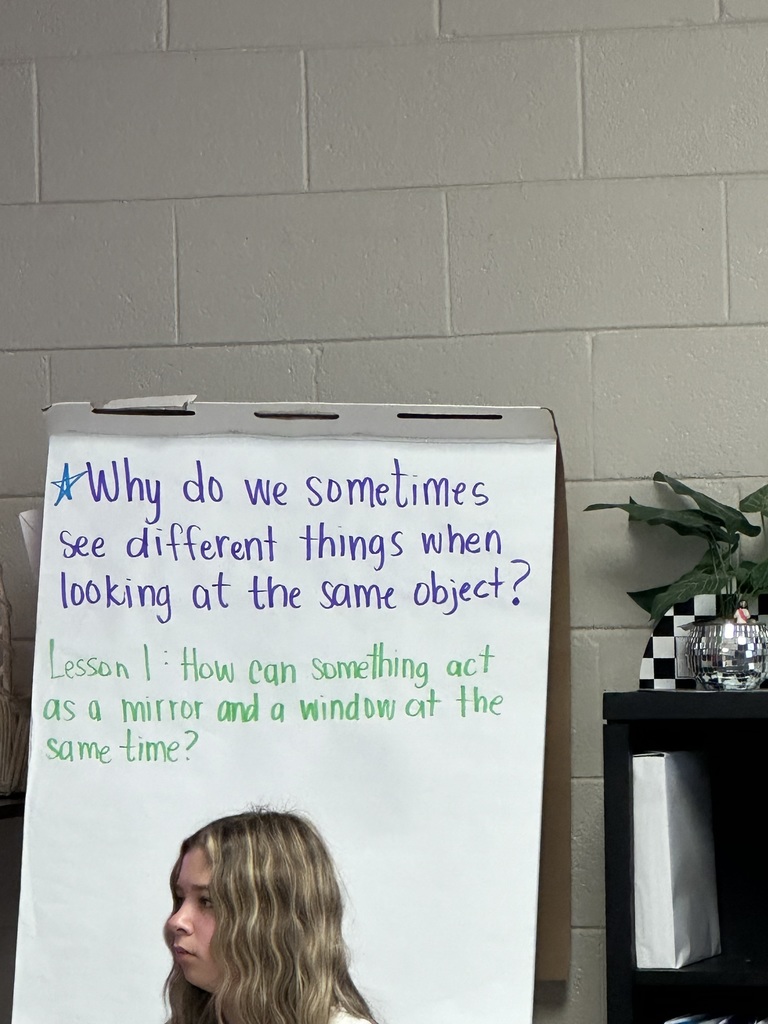 ☆Why do we sometimes
see different things when
looking at the same object?
Lesson 1: How can something act
as a mirror and a window at the
same time?